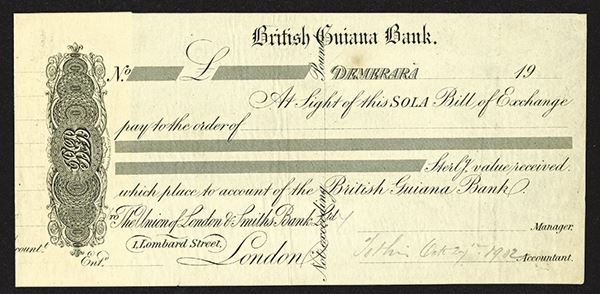 British Guiana Bank.
No £ DEMERARA 19
At Sight of this SOLA Bill of Exchange
pay to the order of
Sterlg. value received
which place to account of the British Guiana Bank.
To The Union of London & Smiths Bank Ltd
1, Lombard Street,
London
Manager.
Accountant.
Entd.
Not exceeding
Pounds
1902